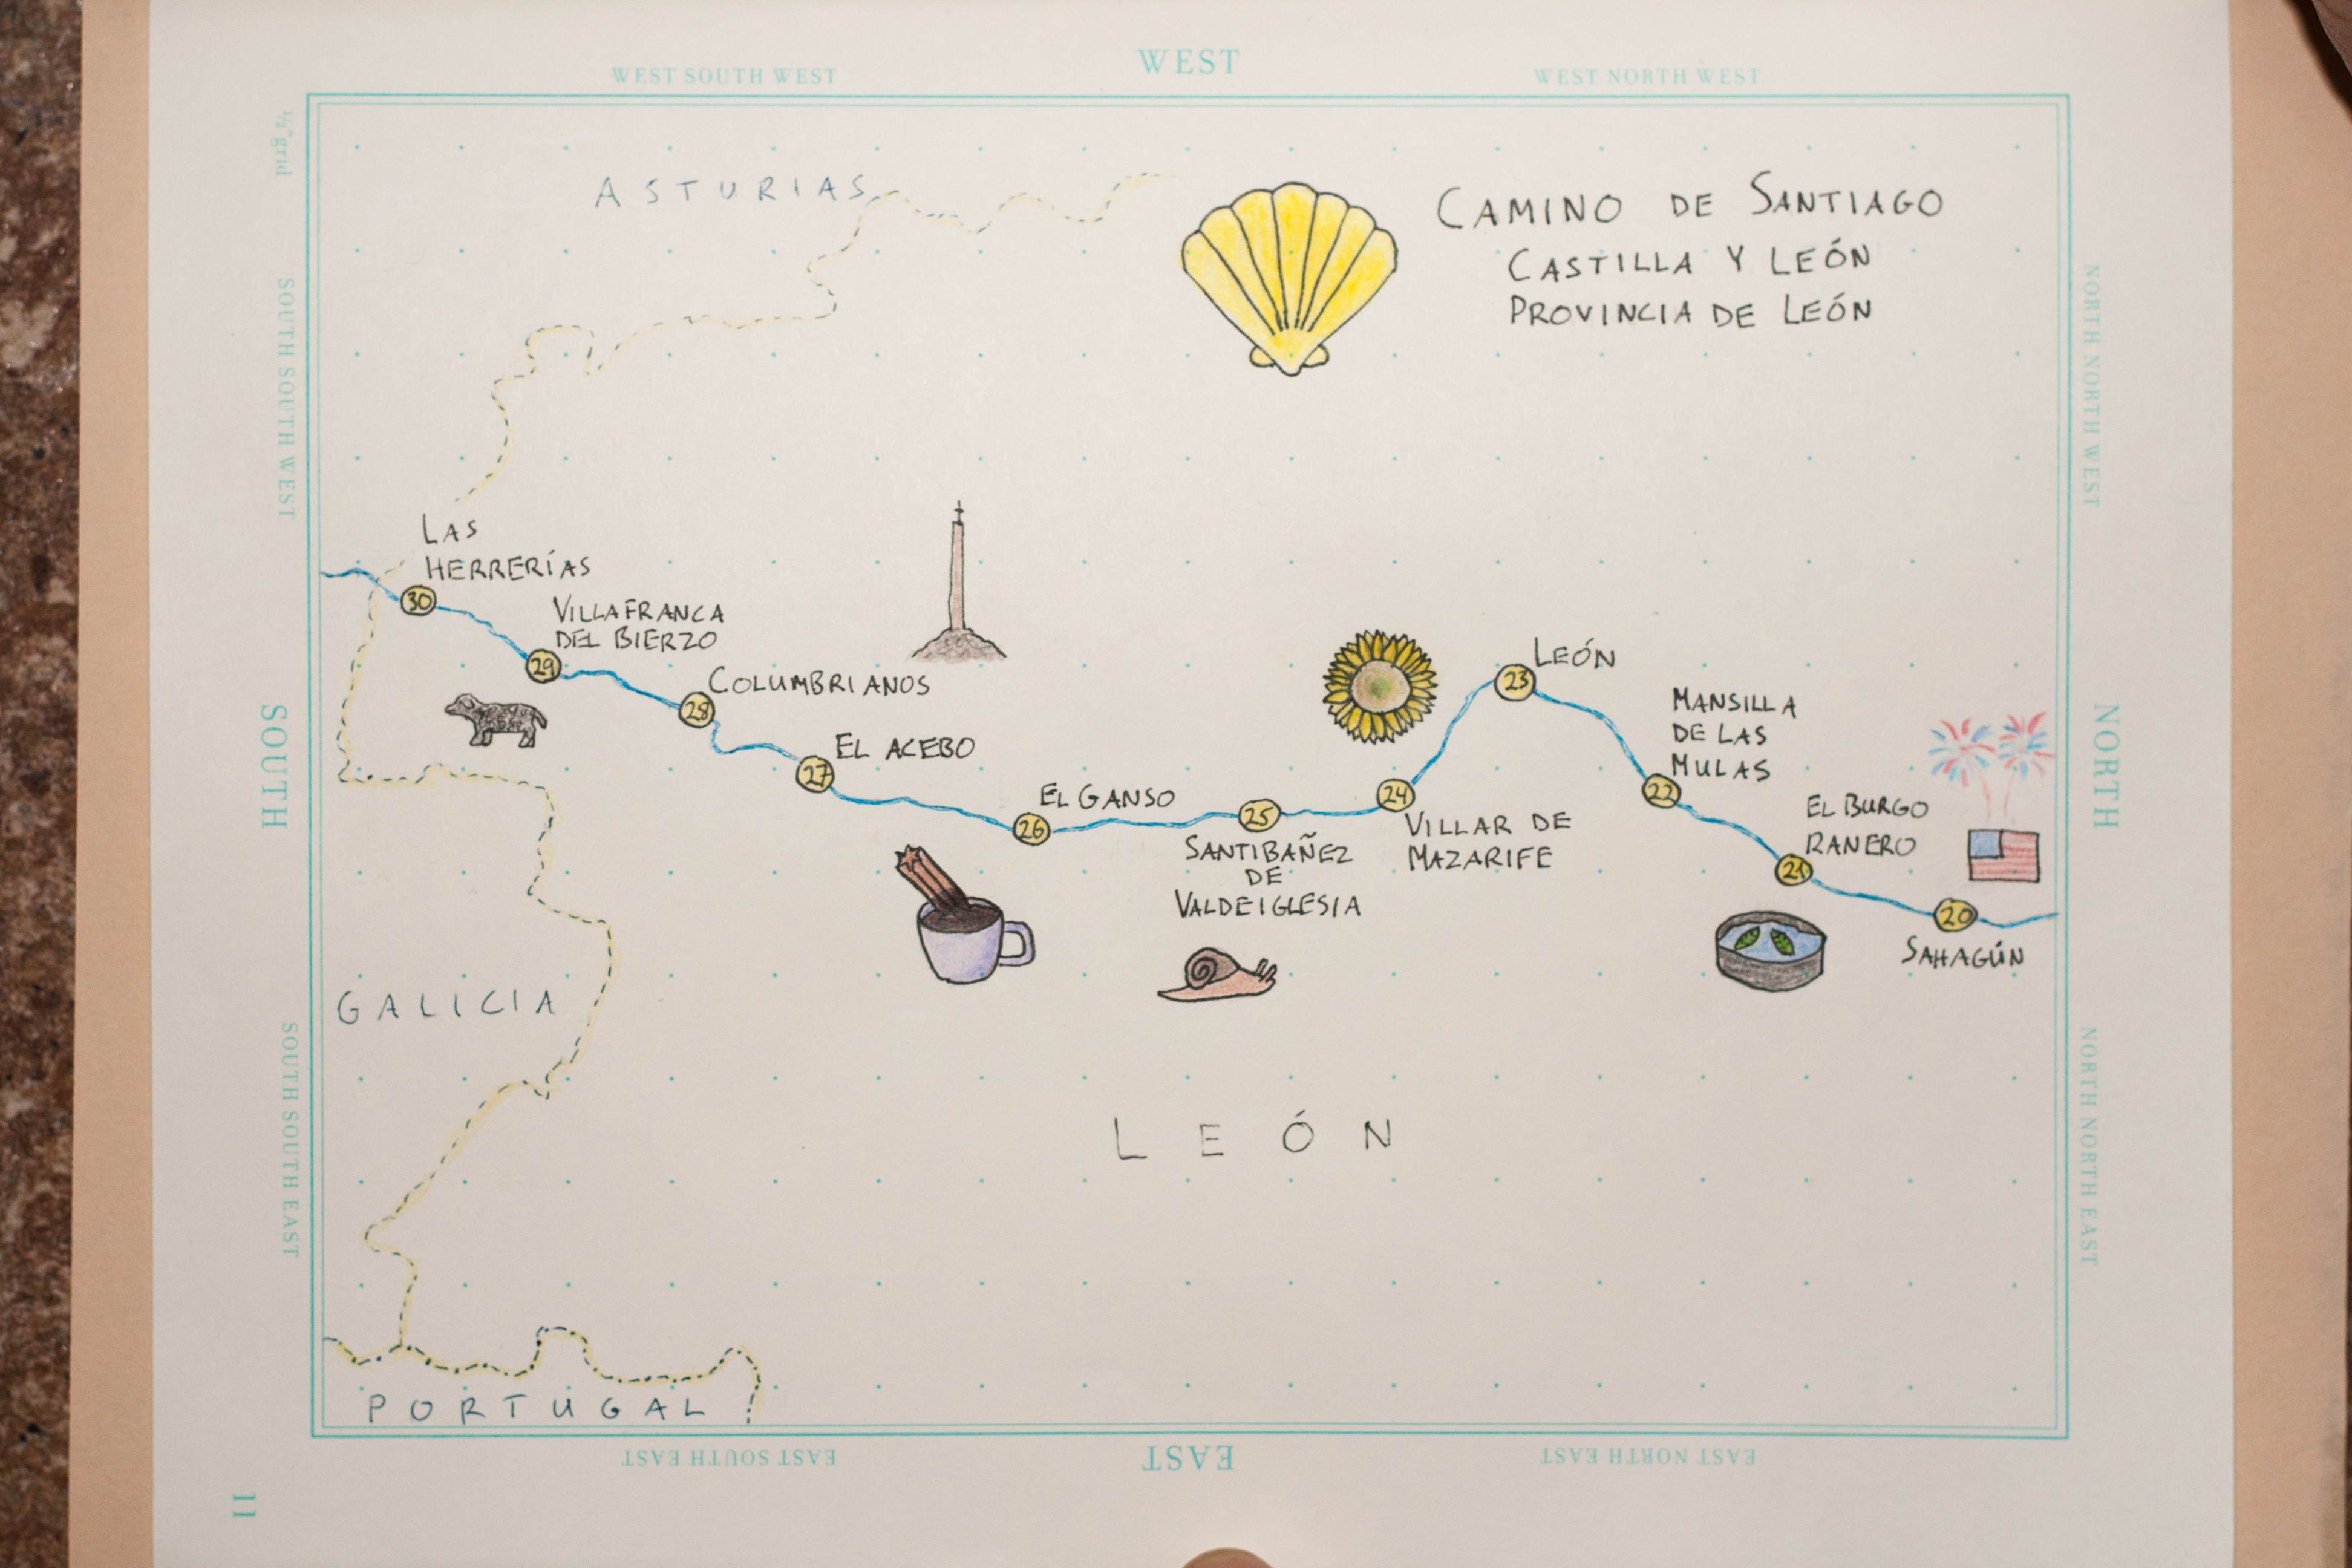 WEST
WEST SOUTH WEST
WEST NORTH WEST
½" grid
SOUTH SOUTH WEST
SOUTH
SOUTH SOUTH EAST
NORTH NORTH WEST
NORTH
NORTH NORTH EAST
ASTURIAS
CAMINO DE SANTIAGO
CASTILLA Y LEÓN
PROVINCIA DE LEÓN
LAS
HERRERÍAS
30
VILLAFRANCA
DEL BIERZO
29
COLUMBRIANOS
28
EL ACEBO
27
EL GANSO
26
25
SANTIBAÑEZ
DE
VALDEIGLESIA
24
VILLAR DE
MAZARIFE
LEÓN
23
MANSILLA
DE LAS
MULAS
22
EL BURGO
RANERO
21
20
SAHAGÚN
GALICIA
LEÓN
PORTUGAL
EAST SOUTH EAST
EAST
EAST NORTH EAST
11